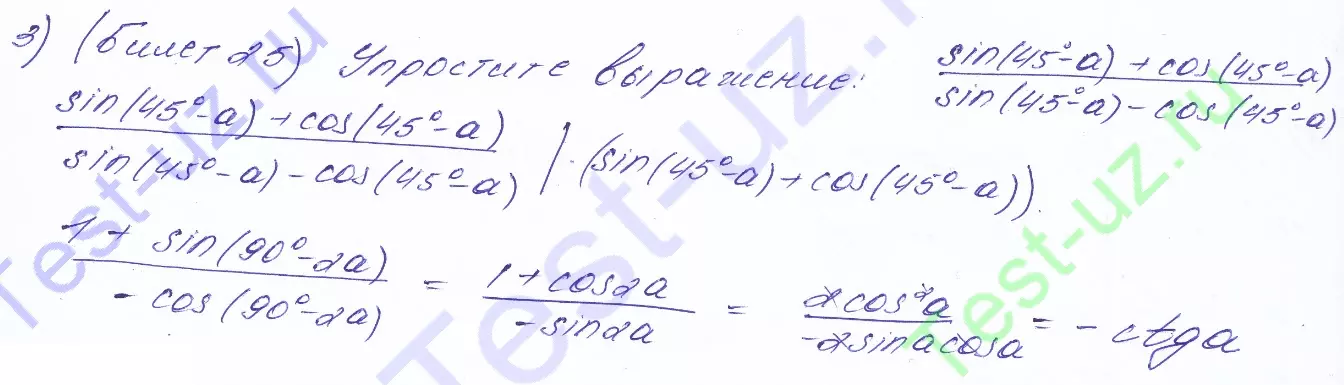 3) (билет 25) Упростите выражение: sin(45°-a)+cos(45°-a) / sin(45°-a)-cos(45°-a)
sin(45°-a)+cos(45°-a) / sin(45°-a)-cos(45°-a) | ·(sin(45°-a)+cos(45°-a)).
1+sin(90°-2a) / -cos(90°-2a) = 1+cos2a / -sin2a = 2cos²a / -2sinacosa = -ctga
Test-uz.ru
Test-uz.ru
Test-uz.ru